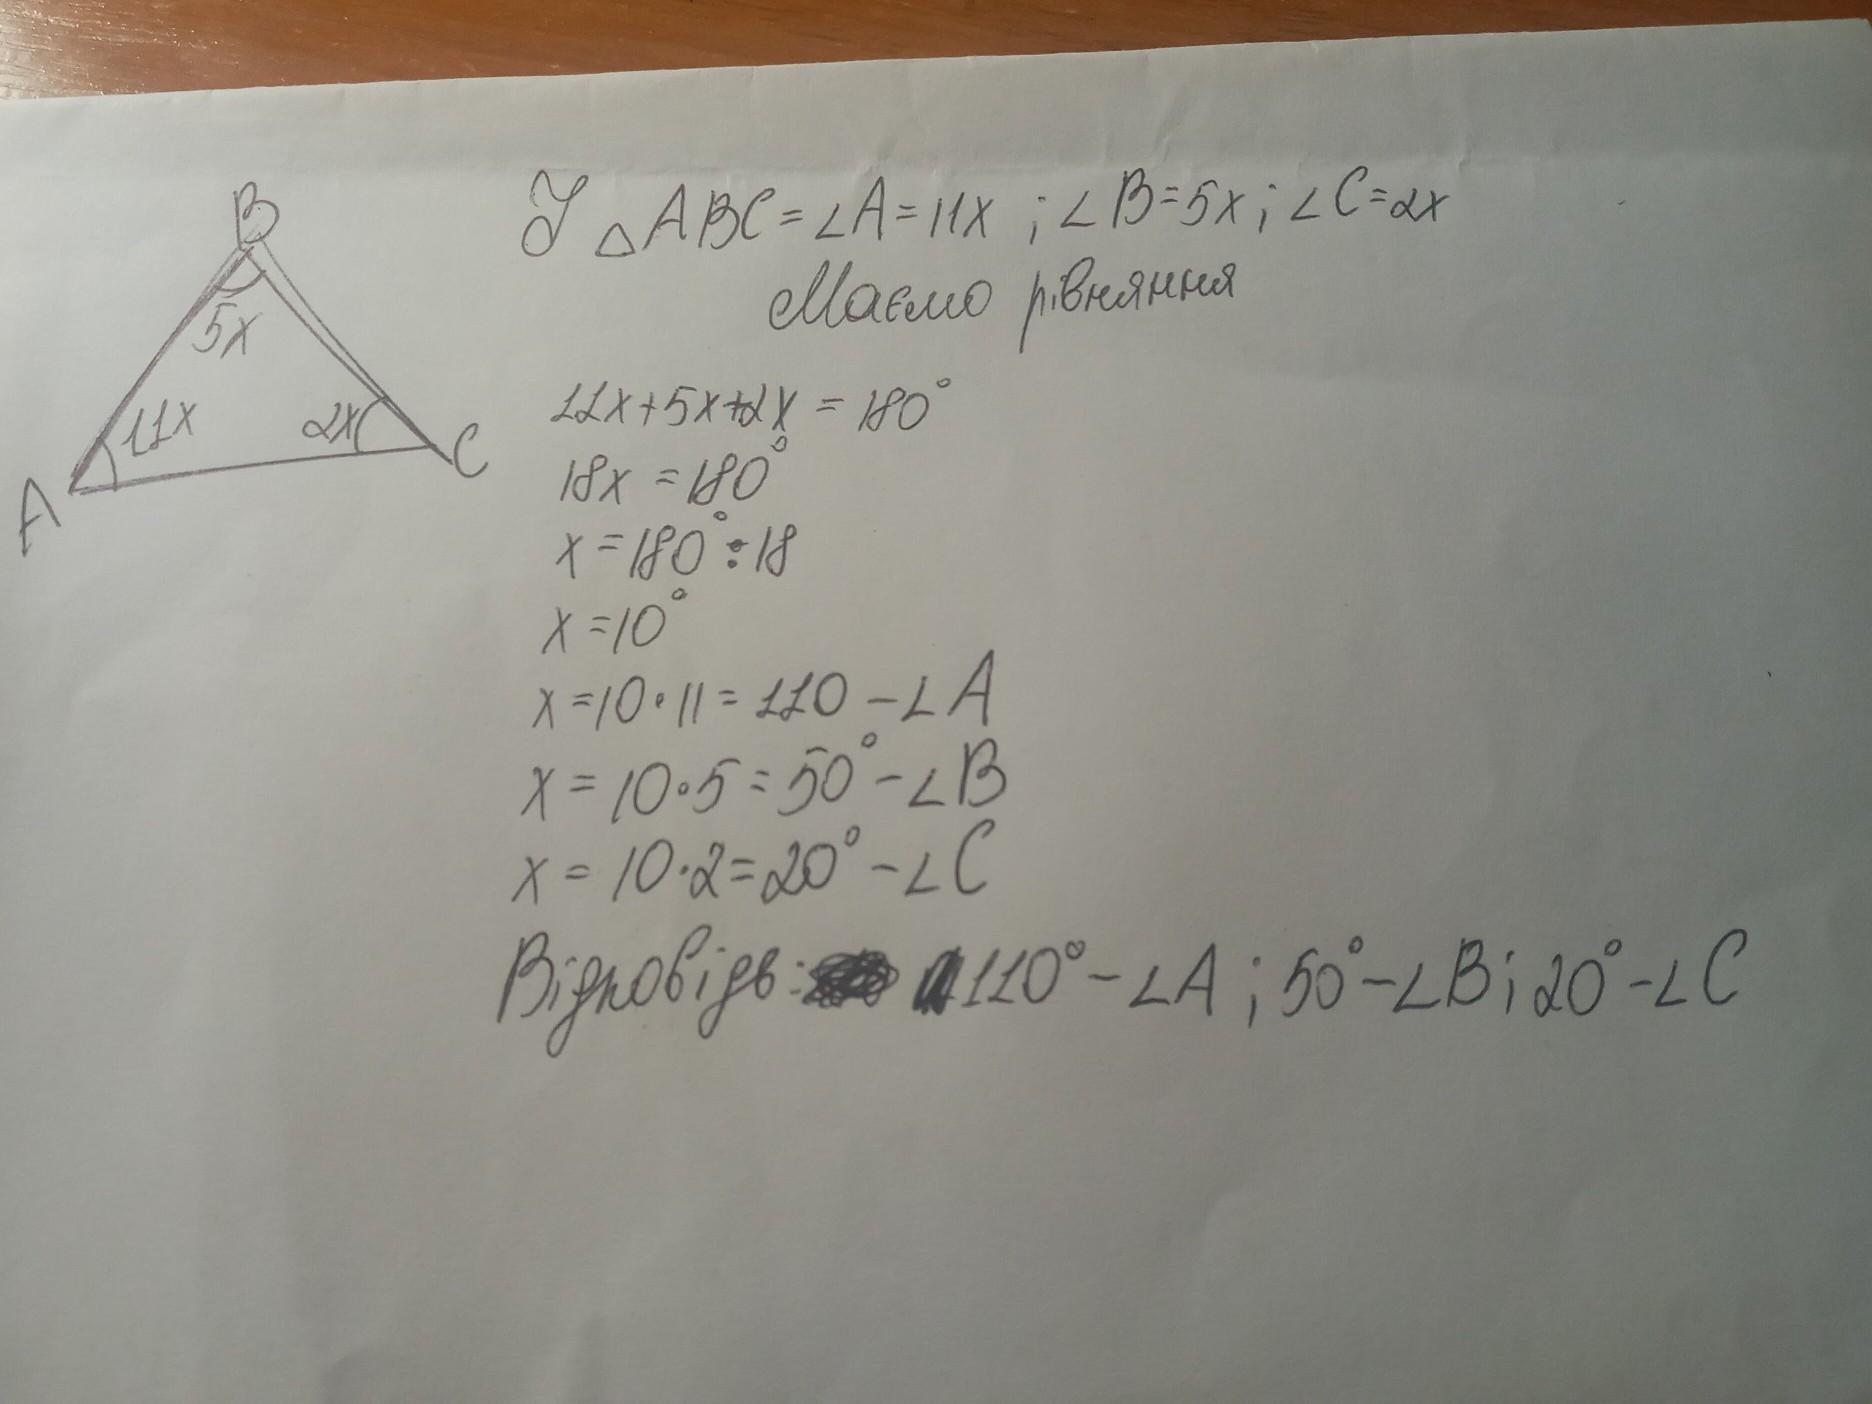 B
5x
11x
2x
A
C
У △ABC = ∠A = 11x ; ∠B = 5x ; ∠C = 2x
Маємо рівняння
11x + 5x + 2x = 180°
18x = 180°
x = 180° : 18
x = 10°
x = 10 · 11 = 110 – ∠A
x = 10 · 5 = 50° – ∠B
x = 10 · 2 = 20° – ∠C
Відповідь: 110° – ∠A ; 50° – ∠B ; 20° – ∠C